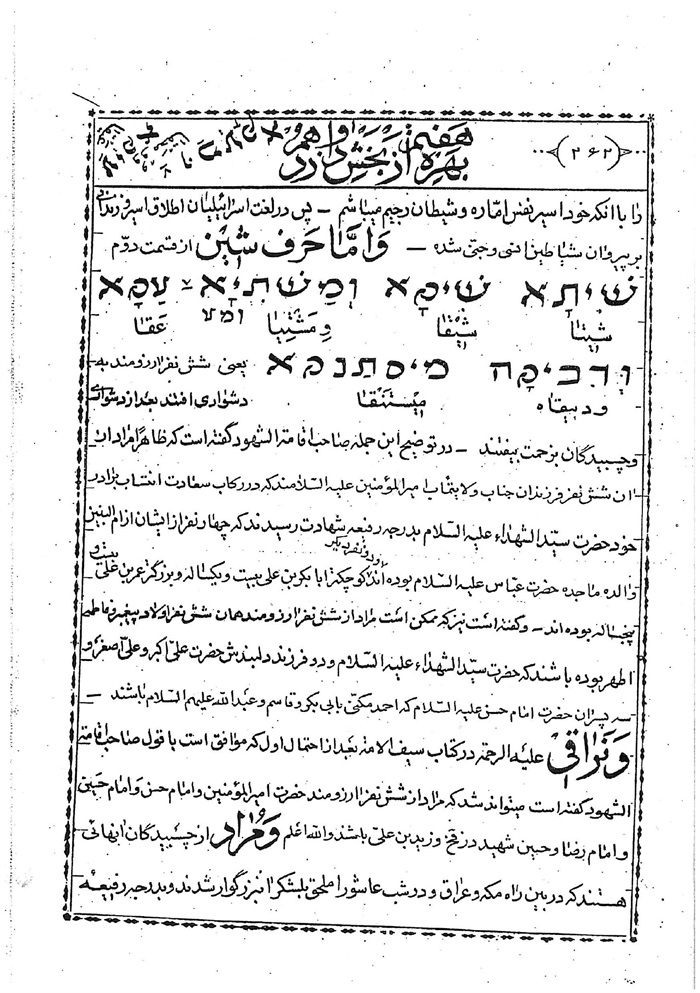 (۲۶۲)
هفتم
بهره از بخش دوازدهم
را با آنکه خود اسیر نفس اماره و شیطان رجیم میباشم – پس در لغت اسرائیلیان اطلاق اسیر و زندانی
بر پیروان شیاطین انسی و جنی شده – وَاَمّا حَرف شین از قسمت دوم
שיתא שיקא ומשתיא עקא
شیتا شیقا ومشتیا ومع عقا
ודביקה מיסתנקא یعنی شش نفر ارزومند به
ودبیقاه میستنقا دشواری افتند بعد از دشواری
و چسبیدگان بزحمت بیفتند – در توضیح این جمله صاحب اقامة الشهود گفته است که ظاهراً مراد از
ان شش نفر فرزندان جناب ولایتماب امیرالمؤمنین علیه السلامند که در رکاب سعادت انتساب برادر
خود حضرت سید الشهداء علیه السلام بدرجه رفیعه شهادت رسیدند که چهار نفر از ایشان از ام البنین
و دو نفر دیگر
والده ماجده حضرت عباس علیه السلام بوده اند کوچکتر ابابکر بن علی بیست و یکساله و بزرگتر عمر بن علی بیست و
پنجساله بوده اند – و گفته است نیز که ممکن است مراد از شش نفر ارزومند همان شش نفر اولاد پیغمبر و فاطمه
اطهر بوده باشند که حضرت سید الشهداء علیه السلام و دو فرزند دلبندش حضرت علی اکبر و علی اصغر و
سه پسران حضرت امام حسن علیه السلام که احمد مکنی بابی بکر و قاسم و عبدالله علیهم السلام باشند –
وَنَراقی علیه الرحمة در کتاب سیف الامة بعد از احتمال اول که موافق است با قول صاحب اقامة
الشهود گفته است میتواند شد که مراد از شش نفر ارزومند حضرت امیرالمؤمنین و امام حسن و امام حسین
و امام رضا و حسین شهید در فخ و زید بن علی باشند والله اعلم وَمُراد از چسبیدگان انهائی
هستند که در بین راه مکه و عراق و در شب عاشورا ملحق بلشکر انبزرگوار شدند و بدرجه رفیعه